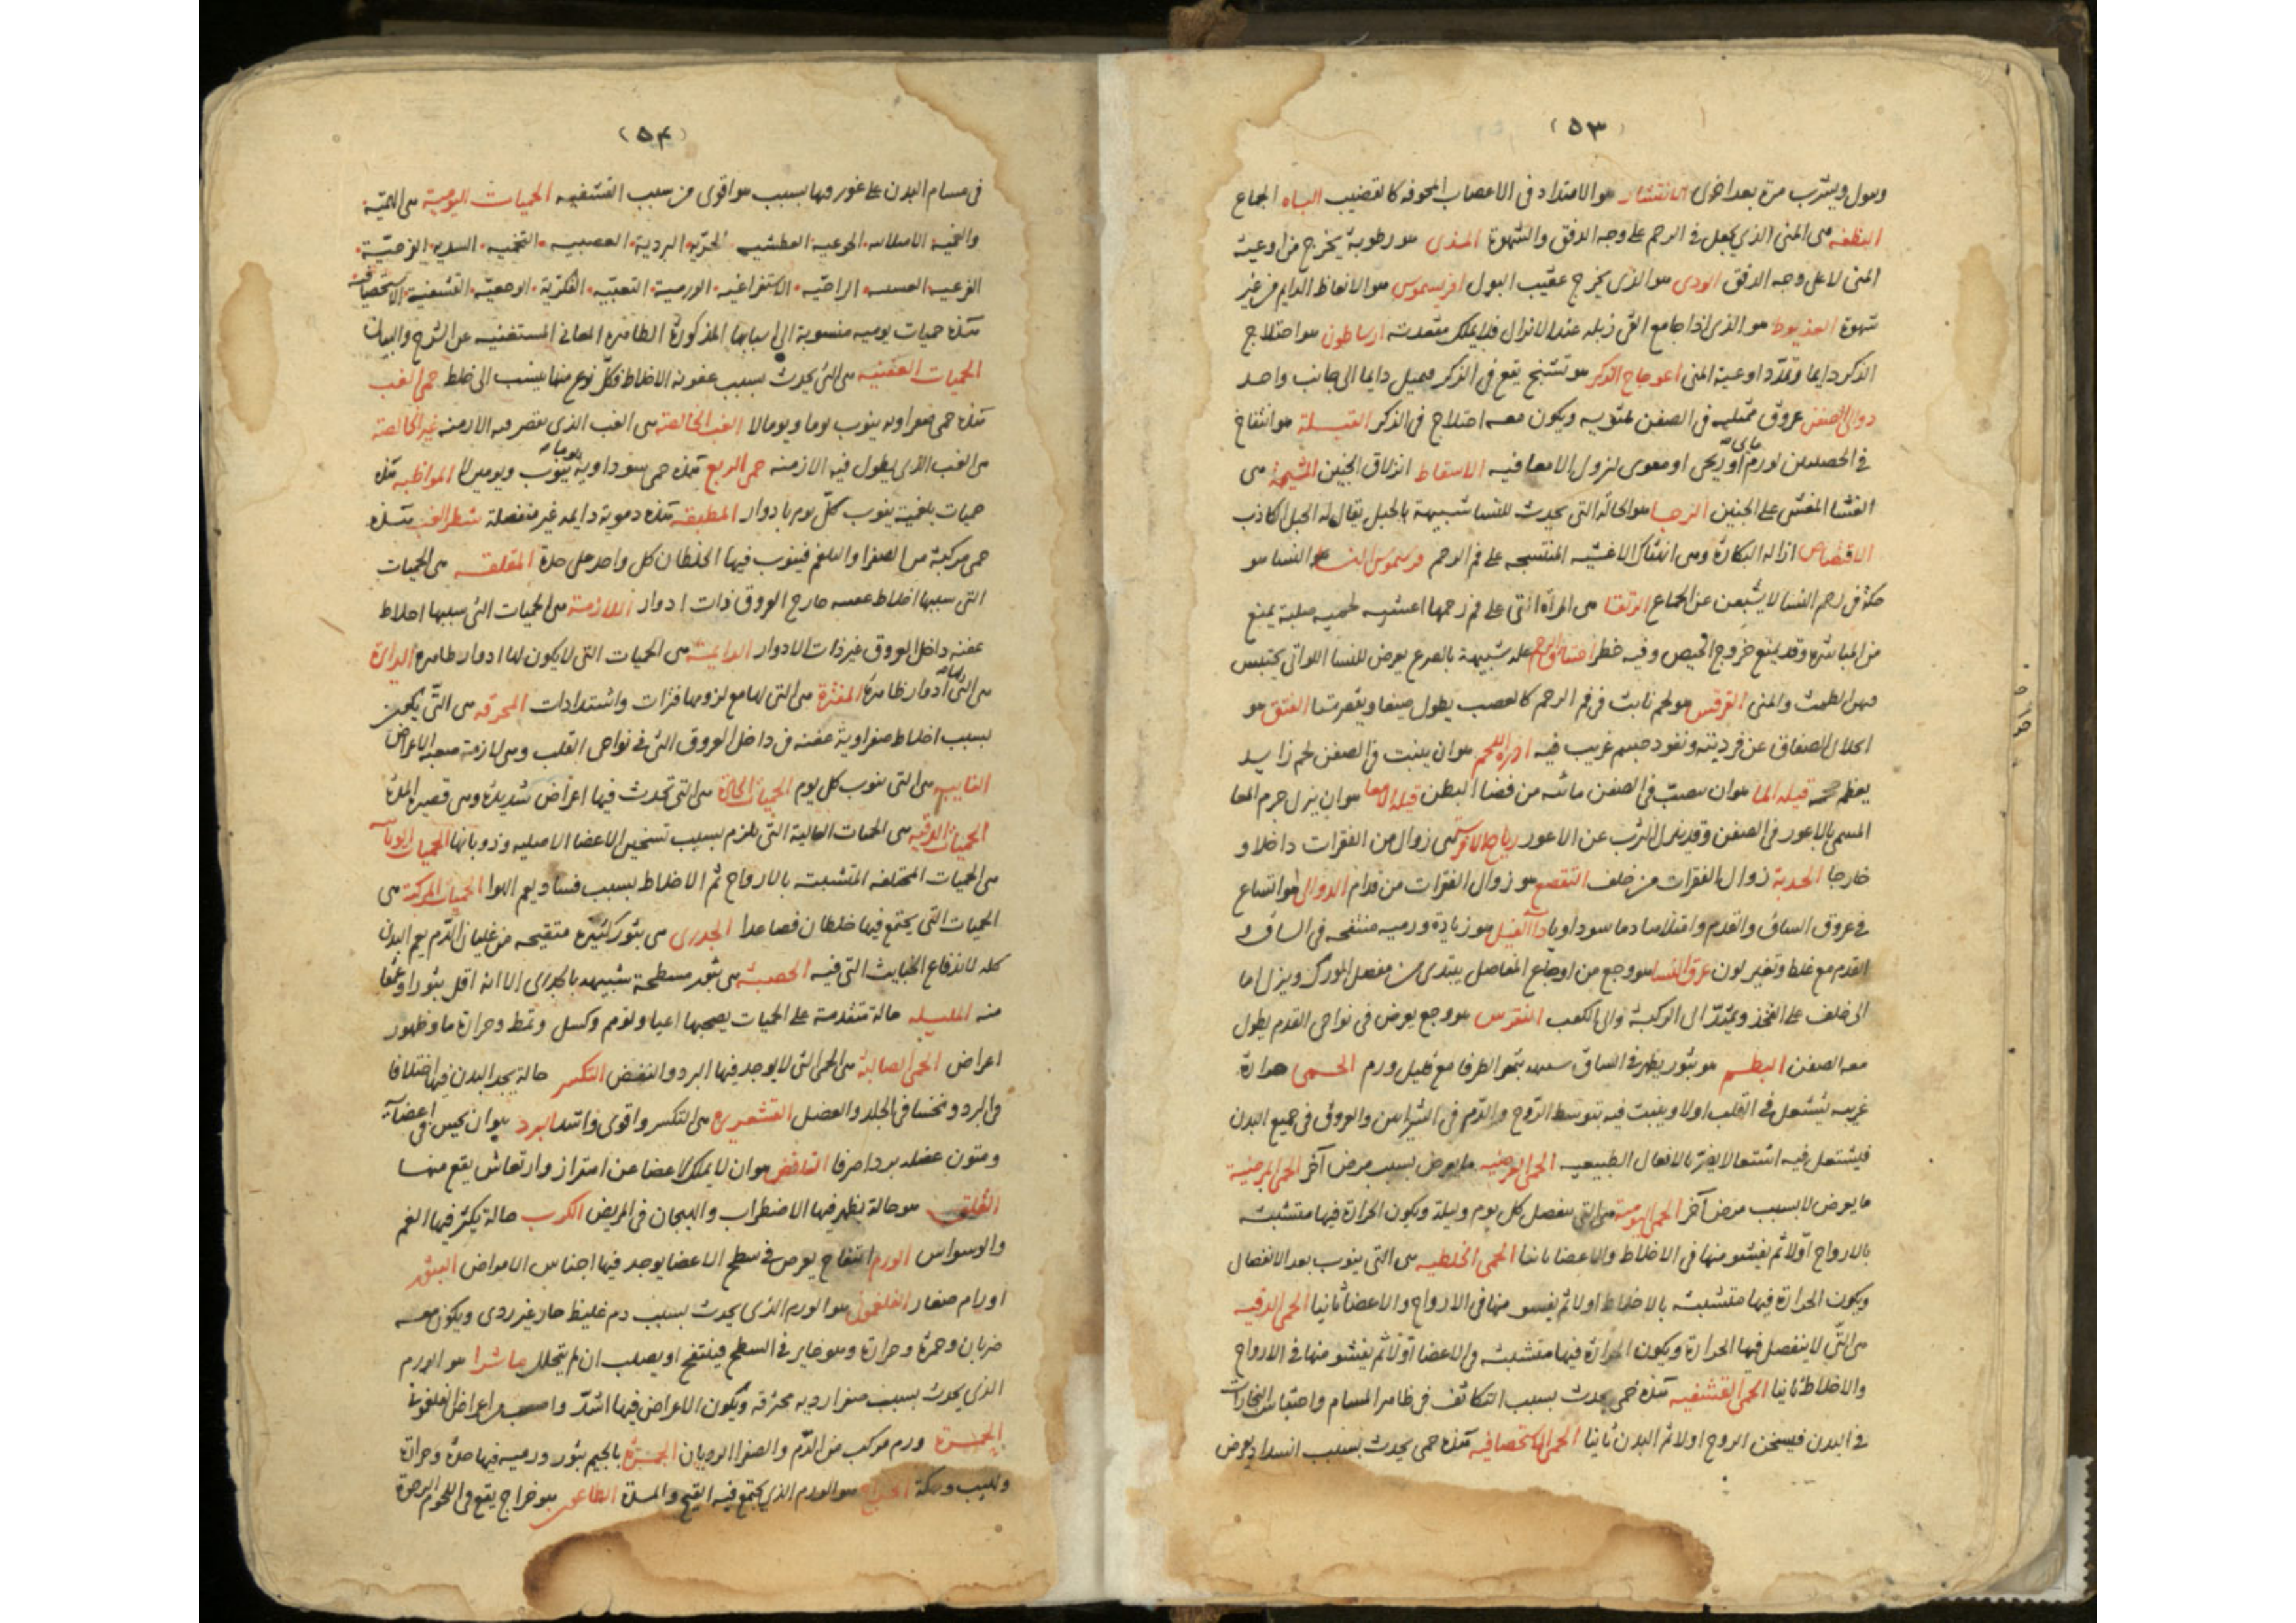 (٥٣)
ويبول ويشرب مرة بعد اخرى الانتشار هو الامتداد فى الاعصاب المجوفه كالقضيب الباه الجماع
النطفه هى المنى الذى يحصل فى الرحم على وجه الدفق والشهوة المذى هو رطوبة يخرج من اوعية
المنى لا على وجه الدفق الودى هو الذى يخرج عقيب البول افريسموس هو الانعاظ الدايم من غير
شهوة العذيوط هو الذى اذا جامع القى زبله عند الانزال فلا يملك مقعدته ارساطون هو اختلاج
الذكر دايما وتمدد اوعية المنى اعوجاج الذكر هو تشنج يقع فى الذكر فيميل دايما الى جانب واحد
دوالى الصفن عروق ممتليه فى الصفن ملتويه ويكون معه اختلاج فى الذكر القيلة هو انتفاخ
فى الخصيتين لورم او ريحى او معوى لنزول الامعا فيه الاسقاط انزلاق الجنين المشيمة هى
الغشا المغشى على الجنين الرجا هو الحالة التى يحدث للنسا شبيهة بالحبل يقال له الحبل الكاذب
الاقتضاض ازالة البكارة وهى انهتاك الاغشيه المنتسجه على فم الرحم فريسموس النسا هو
حكة فى رحم النسا لا يشبعن عن الجماع الرتقا هى المرأة التى على فم رحمها اغشيه لحميه صلبة يمنع
من المباشرة وقد يمنع خروج الحيض وفيه خطر اختناق الرحم علة شبيهة بالصرع يعرض للنسا اللواتى يحتبس
فيهن الطمث والمنى القرقس هو لحم نابت فى فم الرحم كالعصب يطول صيفا ويقصر شتا الفتق هو
انحلال الصفاق عن فرديته ونفوذ جسم غريب فيه ادرة اللحم هو ان ينبت فى الصفن لحم زايد
يعظم قيلة الما هو ان ينصب فى الصفن مائية من فضا البطن قيلة الامعا هو ان ينزل جرم المعا
المسمى بالاعور فى الصفن وقد ينزل الثرب عن الاعور رياح الافرسة هى زوال من الفقرات داخلا و
خارجا الحدبة زوال الفقرات من خلف التقصع هو زوال الفقرات من قدام الدوالى هو اتساع
فى عروق الساق والقدم وامتلاها دما سوداويا داء الفيل هو زيادة ورميه منتفخه فى الساق و
القدم مع غلظ وتغير لون عرق النسا هو وجع من اوجاع المفاصل يبتدى من مفصل الورك وينزل اما
الى خلف على الفخذ ويمتد الى الركبة والى الكعب النقرس هو وجع يعرض فى نواحى القدم يطول
معه الصفن البطم هو بثور يظهر فى الساق شبيه بثمر الطرفا مع قليل ورم الحمى حرارة
غريبه يشتعل فى القلب اولا وينبت فيه بتوسط الروح والدم فى الشرايين والعروق فى جميع البدن
فيشتعل فيه اشتعالا يضر بالافعال الطبيعيه الحمى العرضيه ما يعرض بسبب مرض آخر الحمى المرضية
ما يعرض لا بسبب مرض آخر الحمى اليومية هى التى ينفصل كل يوم وليلة ويكون الحرارة فيها متشبثه
بالارواح اولا ثم يفشو منها فى الاخلاط والاعضا ثانيا الحمى الخلطيه هى التى ينوب بعد الانفصال
ويكون الحرارة فيها متشبثه بالاخلاط اولا ثم يفشو منها فى الارواح والاعضا ثانيا الحمى الدقيه
هى التى لا ينفصل فيها الحرارة ويكون الحرارة فيها متشبثه فى الاعضا اولا ثم يفشو منها فى الارواح
والاخلاط ثانيا الحمى القشفيه هذه حمى يحدث بسبب التكاثف فى ظاهر المسام واحتباس البخارات
فى البدن فيسخن الروح اولا ثم البدن ثانيا الحمى الاستحصافيه هذه حمى يحدث بسبب انسداد يعرض
(٥٤)
فى مسام البدن على غور فيها بسبب هو اقوى من سبب القشفيه الحميات اليومية هى الهمية
والغمية الجوعية العطشيه الحرية البردية الغضبيه التخميه السددية الفرحية
الفزعيه الراحيه الاستفراغيه الورمية التعبيه الفكرية الوجعية القشفية الاستحصافيه
هذه حميات يوميه منسوبة الى اسبابها المذكورة الظاهرة المعانى المستغنيه عن الشرح والبيان
الحميات العفنيه هى التى يحدث بسبب عفونة الاخلاط فكل نوع منها ينسب الى خلط حمى الغب
هذه حمى صفراويه ينوب يوما ويوما لا الغب الخالصة هى الغب الذى يقصر فيه الازمنه غير الخالصة
هى الغب الذى يطول فيه الازمنه حمى الربع هذه حمى سوداوية ينوب يوما ويومين لا المواظبه هذه
حميات بلغمية ينوب كل يوم بادوار المطبقه هذه دموية دايمه غير منفصلة شطر الغب هذه
حمى مركبة من الصفرا والبلغم فينوب فيها الخلطان كل واحد على حدة المقلقه هى الحميات
التى سببها اخلاط عفنه خارج العروق ذات ادوار اللازمة هى الحميات التى سببها اخلاط
عفنه داخل العروق غير ذات الادوار الدايمة هى الحميات التى لا يكون لها ادوار ظاهرة الدايرة
هى التى لها ادوار ظاهرة المفترة هى التى لها مع لزومها فترات واشتدادات المحرقه هى التى يكون
بسبب اخلاط صفراوية عفنه فى داخل العروق التى فى نواحى القلب وهى لازمة صعبه الاعراض
النايبه هى التى ينوب كل يوم الحميات الحادة هى التى تحدث فيها اعراض شديدة وهى قصيرة المدة
الحميات الدقيه هى الحميات البالية التى يلزم بسبب تسخين الاعضا الاصليه وذوبانها الحميات الوبائيه
هى الحميات المختلفه المتشبثه بالارواح ثم الاخلاط بسبب فساد يعم الهوا الحميات المركبة هى
الحميات التى يجتمع فيها خلطان فصاعدا الجدرى هى بثور كثيرة متقيحه من غليان الدم يعم البدن
كله لاندفاع الخبايث التى فيه الحصبة هى بثور مسطحة شبيهه بالجدرى الا انه اقل بثورا وعمقا
منه المليله حالة متقدمة على الحميات يصحبها اعيا وتوهم وكسل وتمط وحرارة ما وظهور
اعراض الحمى الصالبة هى الحمى التى لا يوجد فيها البرد والنفض التكسر حالة يجد البدن فيها اختلافا
فى البرد ونخسا فى الجلد والعضل القشعريرة هى التكسر واقوى واشد البرد هو ان يحس فى اعضائه
ومتون عضله بردا صرفا النافض هو ان لا يملك الاعضا عن اهتزاز وارتعاش يقع منها
القلق هو حالة يظهر فيها الاضطراب والهيجان فى المريض الكرب حالة يكثر فيها الغم
والوسواس الورم انتفاخ يعرض فى سطح الاعضا يوجد فيها اجناس الامراض البثور
اورام صغار الفلغمونى هو الورم الذى يحدث بسبب دم غليظ حار غير ردى ويكون معه
ضربان وحمرة وحرارة وهو غاير فى السطح فينتفخ او يصلب ان لم يتحلل ماشرا هو الورم
الذى يحدث بسبب صفرا رديه محترقه ويكون الاعراض فيها اشد من اعراض الفلغمونى
الحمرة ورم مركب من الدم والصفرا الرديان الجمرة بالجيم بثور ورميه فيها حدة وحرارة
ولهيب وحكة الخراج هو الورم الذى يجتمع فيه القيح والمدة الطاعون هو خراج يقع فى اللحوم الرخوة